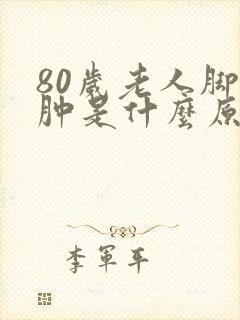 80歲老人脚
肿是什麼原
李軍平